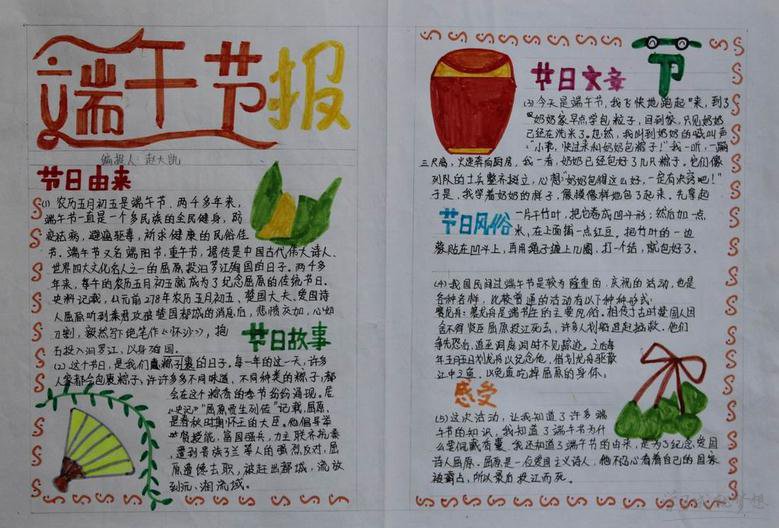 端午节报
编报人 赵大凯
节日由来
(1) 农历五月初五是端午节.两千多年来,
端午节一直是一个多民族的全民健身,防
疫祛病,避瘟驱毒,祈求健康的民俗佳
节.端午节又名端阳节,重午节,据传是中国古代伟大诗人、
世界四大文化名人之一的屈原投汨罗江殉国的日子。两千多
年来,每年的农历五月初五就成为了纪念屈原的传统节日。
史料记载,公元前278年农历五月初五、楚国大夫、爱国诗
人屈原听到秦军攻破楚国都城的消息后,悲愤交加,心如
刀割,毅然写下绝笔作《怀沙》,抱
石投入汨罗江,以身殉国。
节日故事
(2) 这个节日,是我们裹粽子的日子。每一年的这一天,许多
人家都会包裹粽子,许许多多不同味道,不同种类的粽子,都
会在这个粽香的季节纷纷涌现。
《史记》"屈原贾生列传"记载,屈原,
是春秋时期怀王的大臣。他倡导举
贤授能,富国强兵,力主联齐抗秦,
遭到贵族子兰等人的强烈反对,屈
原遭馋去职,被赶出都城,流放
到沅、湘流域。
节日文章
节
(3) 今天是端午节,我飞快地跑起来,到了
奶奶家早点学包粽子,回到家,只见奶奶
已经在洗米了。忽然,我听到奶奶的喊叫声
:"小弟,快过来和奶奶包粽子!"我一听,一蹦
三尺高,火速奔向厨房,我一看,奶奶已经包好了几只粽子。它们像
列队的士兵整齐挺立,心想:"奶奶包得这么好,一定有诀窍吧!"
于是,我学着奶奶的样子,像模像样地包了起来。先拿起
一片干竹叶,把它卷成凹斗形;然后加一点
米,在上面插一点红豆。把竹叶的一边
紧贴在凹斗上,再用绳子缠上几圈,打一个结,就包好了。
节日风俗
(4) 我国民间过端午节是较为隆重的,庆祝的活动,也是
各种各样,比较普遍的活动有以下种种形式:
赛龙舟:赛龙舟是端午节的主要风俗。相传古时楚国人因
舍不得贤臣屈原投江死去,许多人划船追赶拯救。他们
争先恐后,追至洞庭湖时不见踪迹。之后每
年5月5日划龙舟以纪念他。借划龙舟驱散
江中之鱼,以免鱼吃掉屈原的身体。
感受
(5) 这次活动,让我知道了许多端
午节的知识,我知道了端午节为什
么要佩戴香囊,我还知道了端午节的由来,是为了纪念爱国
诗人屈原,屈原是一位爱国主义诗人,他不忍心看着自己的国家
被霸占,所以最后投江而死。